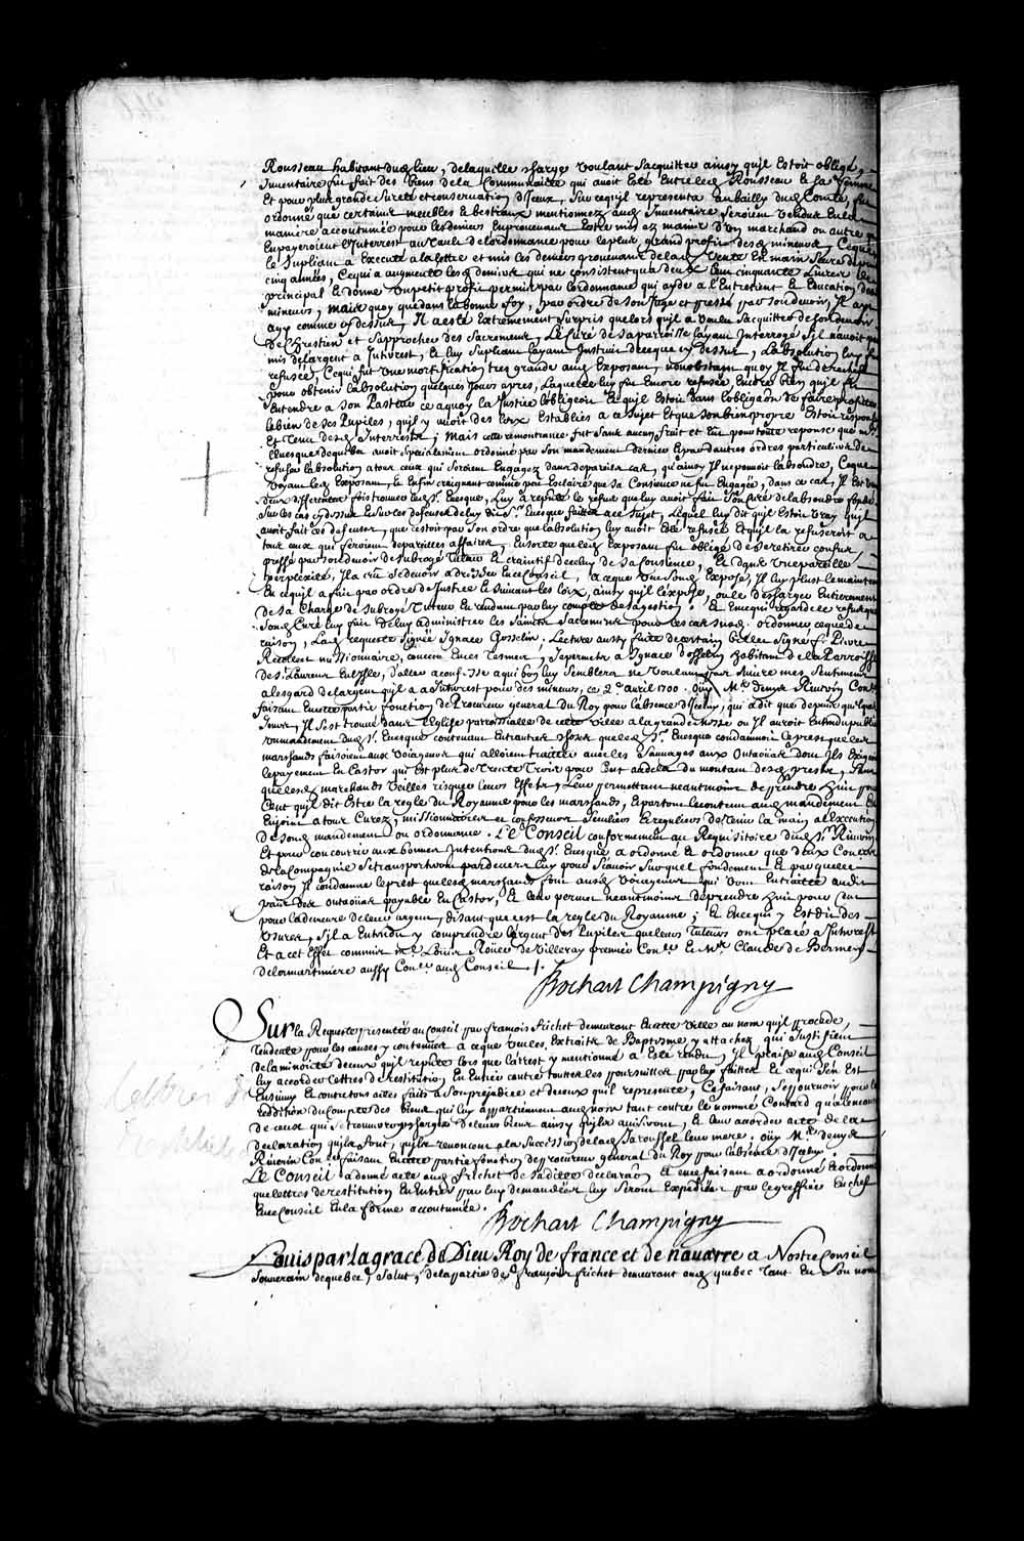 Rousseau habitant dud lieu, de laquelle charge voulant sacquitter ainsy quil estoit obligé,
Inventaire fut fait des biens dela Communauté qui avoit Esté Entre led Rousseau Et sa femme
Et pour plus grande sureté et conservation diceux, sur ce quil representa au bailly dud Comté, fut
ordonné que certains meubles & bestiaux mentionnez aud Inventaire seroient vendus en la
maniere accoutumée pour les deniers En provenans Estre mis ez mains d'un marchand ou autre
En payeroient l'Interest au taux de lordonnance pour le plus grand profit desd mineurs, Ceque
le supliant a Executé a la lettre et mis les deniers provenans de lad vente En main seure depuis
cinq années, Cequi a augmenté lesd deniers qui ne consistent qua deux cens cinquante Livres de
principal & donné un petit profit permis par lordonnance qui ayde a l'Entretient & Education des
mineurs, mais quoy que dans la bonne foy, par ordre de son Juge et pressé par son devoir, Il ayt
agy comme cy dessus, Il a esté Extremement surpris que lors quil a voulu sacquitter de son devoir
de Chrestien et sapprocher des Sacremens, Le Curé de sa paroisse layant Interrogé sil navoit pas
mis de largent a Interest, & luy supliant layant Instruit de ceque cy dessus, Labsolution luy fut
refusée, Cequi fut une mortification tres grande aud Exposant, nonobstant quoy Il fut de rechef
pour obtenir labsolution quelques Jours apres, Laquelle luy fut Encore refusée, Encores bien quil fit
Entendre a son Pasteur ce aquoy la Justice lobligeoit & quil Estoit dans lobligaon de faire profiter
le bien de ses Pupiles, quil y avoit des loix Establies a ce sujet Et que son bien propre Estoit responsable
Et tenu desd Interests; Mais cette remontrance fut sans aucun fruit et Eut pour toute reponse que mr
lEvesque de quebec avoit specialement ordonné par son mandement dernier & par dautres ordres particuliers de
refuser labsolution a tous ceux qui seroient Engagez dans de pareils cas, quainsy Il ne pouvoit labsoudre, Ceque
voyant led Exposant, & Enfin craignant comme peu Esclairé que sa Conscience ne fut Engagée, dans ce cas, Il est venu
deux differentes fois trouver led Sr. Evesque, Luy a repeté le refus que luy avoit fait son curé de labsoudre fondé
sur les cas cy dessus & sur les defenses de luy dit Sr. Evesque faittes a ce sujet, Lequel luy dit quil Estoit vray quil
avoit fait ces defenses, que cestoit par son ordre que labsolution luy avoit Esté refusée & quil la refuseroit a
tous ceux qui feroient de pareilles affaires, Ensorte que led Exposant fut obligé de se retirer confus,
pressé par son devoir de subrogé Tuteur & craintif de celuy de sa Conscience, Et dans une pareille
perplexité, Il a crû se devoir adresser En ce Conseil, a ceque veu led Exposé, Il luy plust le maintenir
En ce quil a fait par ordre de Justice & suivant les loix, ainsy quil l'expose, ou le descharger Entierement
de sa Charge de subrogé Tuteur En rendant par luy compte de sa gestion. Et Encequi regarde le refus que
sond Curé luy fait de luy administrer les Saints Sacremens pour les cas susd. ordonner ceque de
raison, Lad requeste Signée Ignace Gosselin. Lecture aussy faite de certain billet Signé f. Pierre
Recollect missionnaire, concu En ces termes, Je permets a Ignace Gosselin habitant de la Parroisse
de St. Laurent En lIsle, d'aller a confesse a qui bon luy semblera ne voulant pas suivre mes sentimens
a lesgard de largent quil a a Interest pour des mineurs, ce 2e avril 1700. Ouy Me. Denys Riverin Conler
faisant Encette partie fonction de Procureur general du Roy pour labsence dIceluy, qui a dit que depuis quelques
Jours, Il sest trouvé dans l'Eglise parroissialle de cette ville a la grande messe ou Il auroit Entendu publier
un mandement dud Sr. Evesque contenant Entrautres chose que led Sr. Evesque condamnoit le prest que les
marchands faisoient aux voiageurs qui alloient traitter avec les sauvages aux Outaoüaks dont Ils Exigent
le payement En Castor qui Est plus de Trente Trois pour Cent audela du montant desd prests, sans
que lesd marchands veilles risquer leurs Effets, Leur permettant neantmoins de prendre huit pour
Cent quil dit Estre la regle du Royaume pour les marchands, & par tout le contenu aud mandement Et
Enjoint a tous Curez, missionnaires et confesseurs seculiers & reguliers de tenir la main a l'Execution
de sond mandement ou ordonnance. Le Conseil conformement au Requisitoire dud Sr. Riverin
Et pour concourir aux bonnes Intentions dud Sr. Evesque a ordonné & ordonne que deux Conlers
de la Compagnie se transporteront pardevers luy pour scavoir sur quel fondement & par quelle
raison Il condamne le prest que lesd marchands font ausd voiageurs qui vont En traitte audit
pays des outaoüak payable En Castor, & leur permet neantmoins de prendre huit pour Cent
pour la demeure de leur argent, disant que cest la regle du Royaume; & Encequi y Est dit des
Usures, sil a Entendu y comprendre largent des Pupiles que leurs Tuteurs ont placé a Interest
Et a cet Effet commis Mes Louis Roüer de Villeray premier Conler & Mr Claude de Bermen
de la martiniere aussy Conler aud Conseil ./.
Bochart Champigny
Sur la Requeste presentée au Conseil par françois frichet demeurant Encette Ville au nom quil procede,
Tendente pour les causes y contenues a ceque veu les Extraits de Baptesme y attachez qui Justifient
de la minorité de ceux quil repnte lors que larrest y mentionné a Esté rendu, Il plaise aud Conseil
luy accorder lettres de restitution En Entier contre touttes les poursuittes par luy faittes & cequi sen Est
Ensuivy Et contre tous actes faits a son prejudice et de ceux quil represente, Ce faisant, se pourvoir pour la
reddition du Compte des biens qui luy appartiennent aud nom tant contre le nommé Contard qua lencontre
de ceux qui se trouveront chargés de leurs biens ainsy quils aviseront, & leur accorder acte de la
declaration quils font, quils renoncent a la Succession de lad Jaroussel leur mere. Ouy Me. denys
Riverin Con. er faisant Encette partie fonction de procureur general du Roy pour labsence dIceluy.
Le Conseil a donné acte aud frichet de sadite declaraon Et ce faisant a ordonné & ordonne
que lettres de restitution En Entier par luy demandées luy seront Expediées par le greffier En chef
En ce Conseil En la forme accoutumée.
Bochart Champigny
Louis par la grace de Dieu Roy de france et de navarre a Nostre Conseil
Souverain de quebec, Salut, de la partie de françois frichet demeurant aud quebec tant En son nom